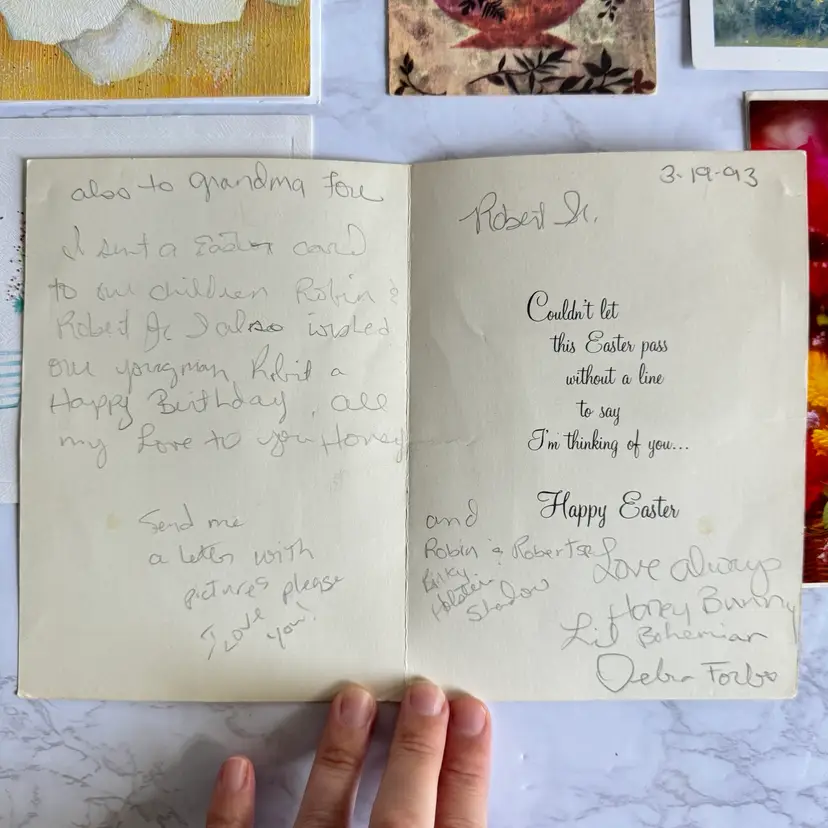 also to grandma fore
I sent a Easter card
to our children Robin &
Robert Jr I also wished
our youngman Robert a
Happy Birthday, all
my Love to you Honey
Send me
a letter with
pictures please
I Love
you!
3-19-93
Robert Sr.
Couldn't let
this Easter pass
without a line
to say
I'm thinking of you...
Happy Easter
and
Robin & Robert
Binky
Holstein
Shadow
Love always
Honey Bunny
Lil Bohemian
Debra Forbs